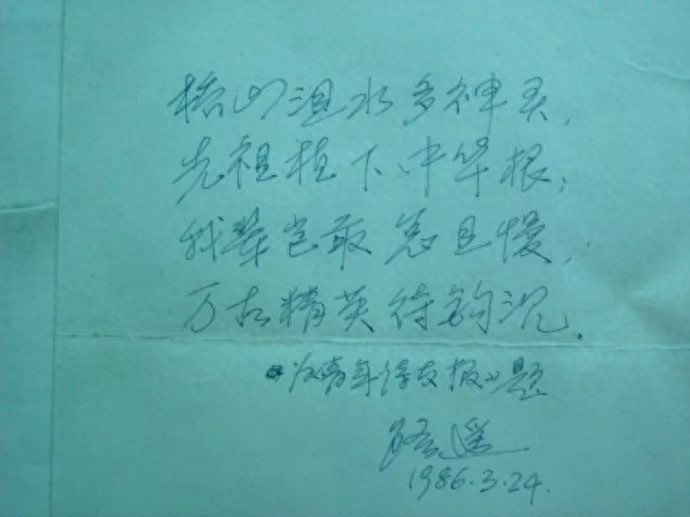 桥山沮水多神灵，
先祖植下中华根；
我辈岂敢怠且慢，
万古精英待钩沉。
《青年诗友报》题
路遥
1986.3.24.